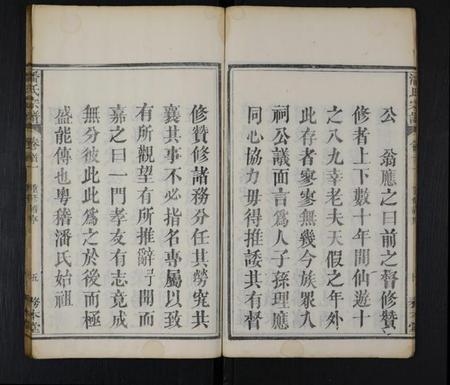 公　翁應之曰前之督修贊
修者上下數十年間仙遊十
之八九幸老夫天假之年外
此存者寥寥無幾今族眾入
祠公議而言為人子孫理應
同心協力毋得推諉其有督
修贊修諸務分任其勞究其
襄其事不必指名專屬以致
有所觀望有所推辭予聞而
嘉之曰一門孝友有志竟成
無分彼此此為之於後而極
盛能傳也粵稽潘氏始祖
潘氏宗譜
卷首一
五
務本堂
潘氏宗譜